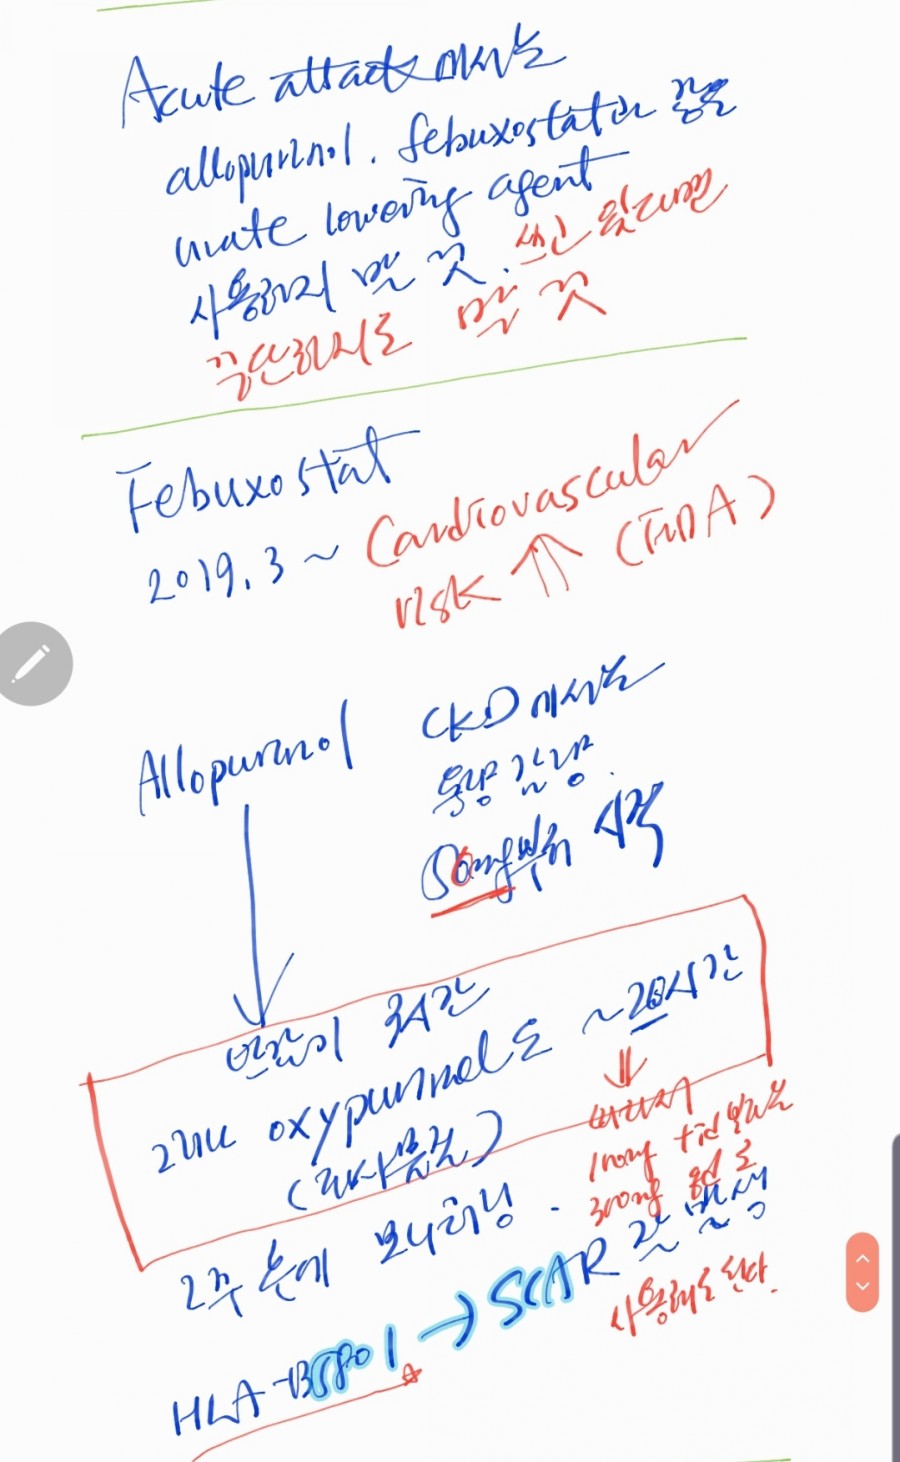 Acute attack에서는
allopurinol, febuxostat와 같은
urate lowering agent
사용하지 말 것. 쓰고 있다면
중단하지도 말 것
Febuxostat
2019. 3 ~ Cardiovascular
risk ⇑ (FDA)
Allopurinol
CKD에서는
용량 감량.
50mg부터 시작
↓
반감기 3시간
그러나 oxypurinol도 ~ 20시간
(대사물질)
↓
따라서
100mg tid 말고
300mg 원 로
사용해도 된다.
2주 후에 모니터링.
HLA-B5801 → SCAR 잘 발생